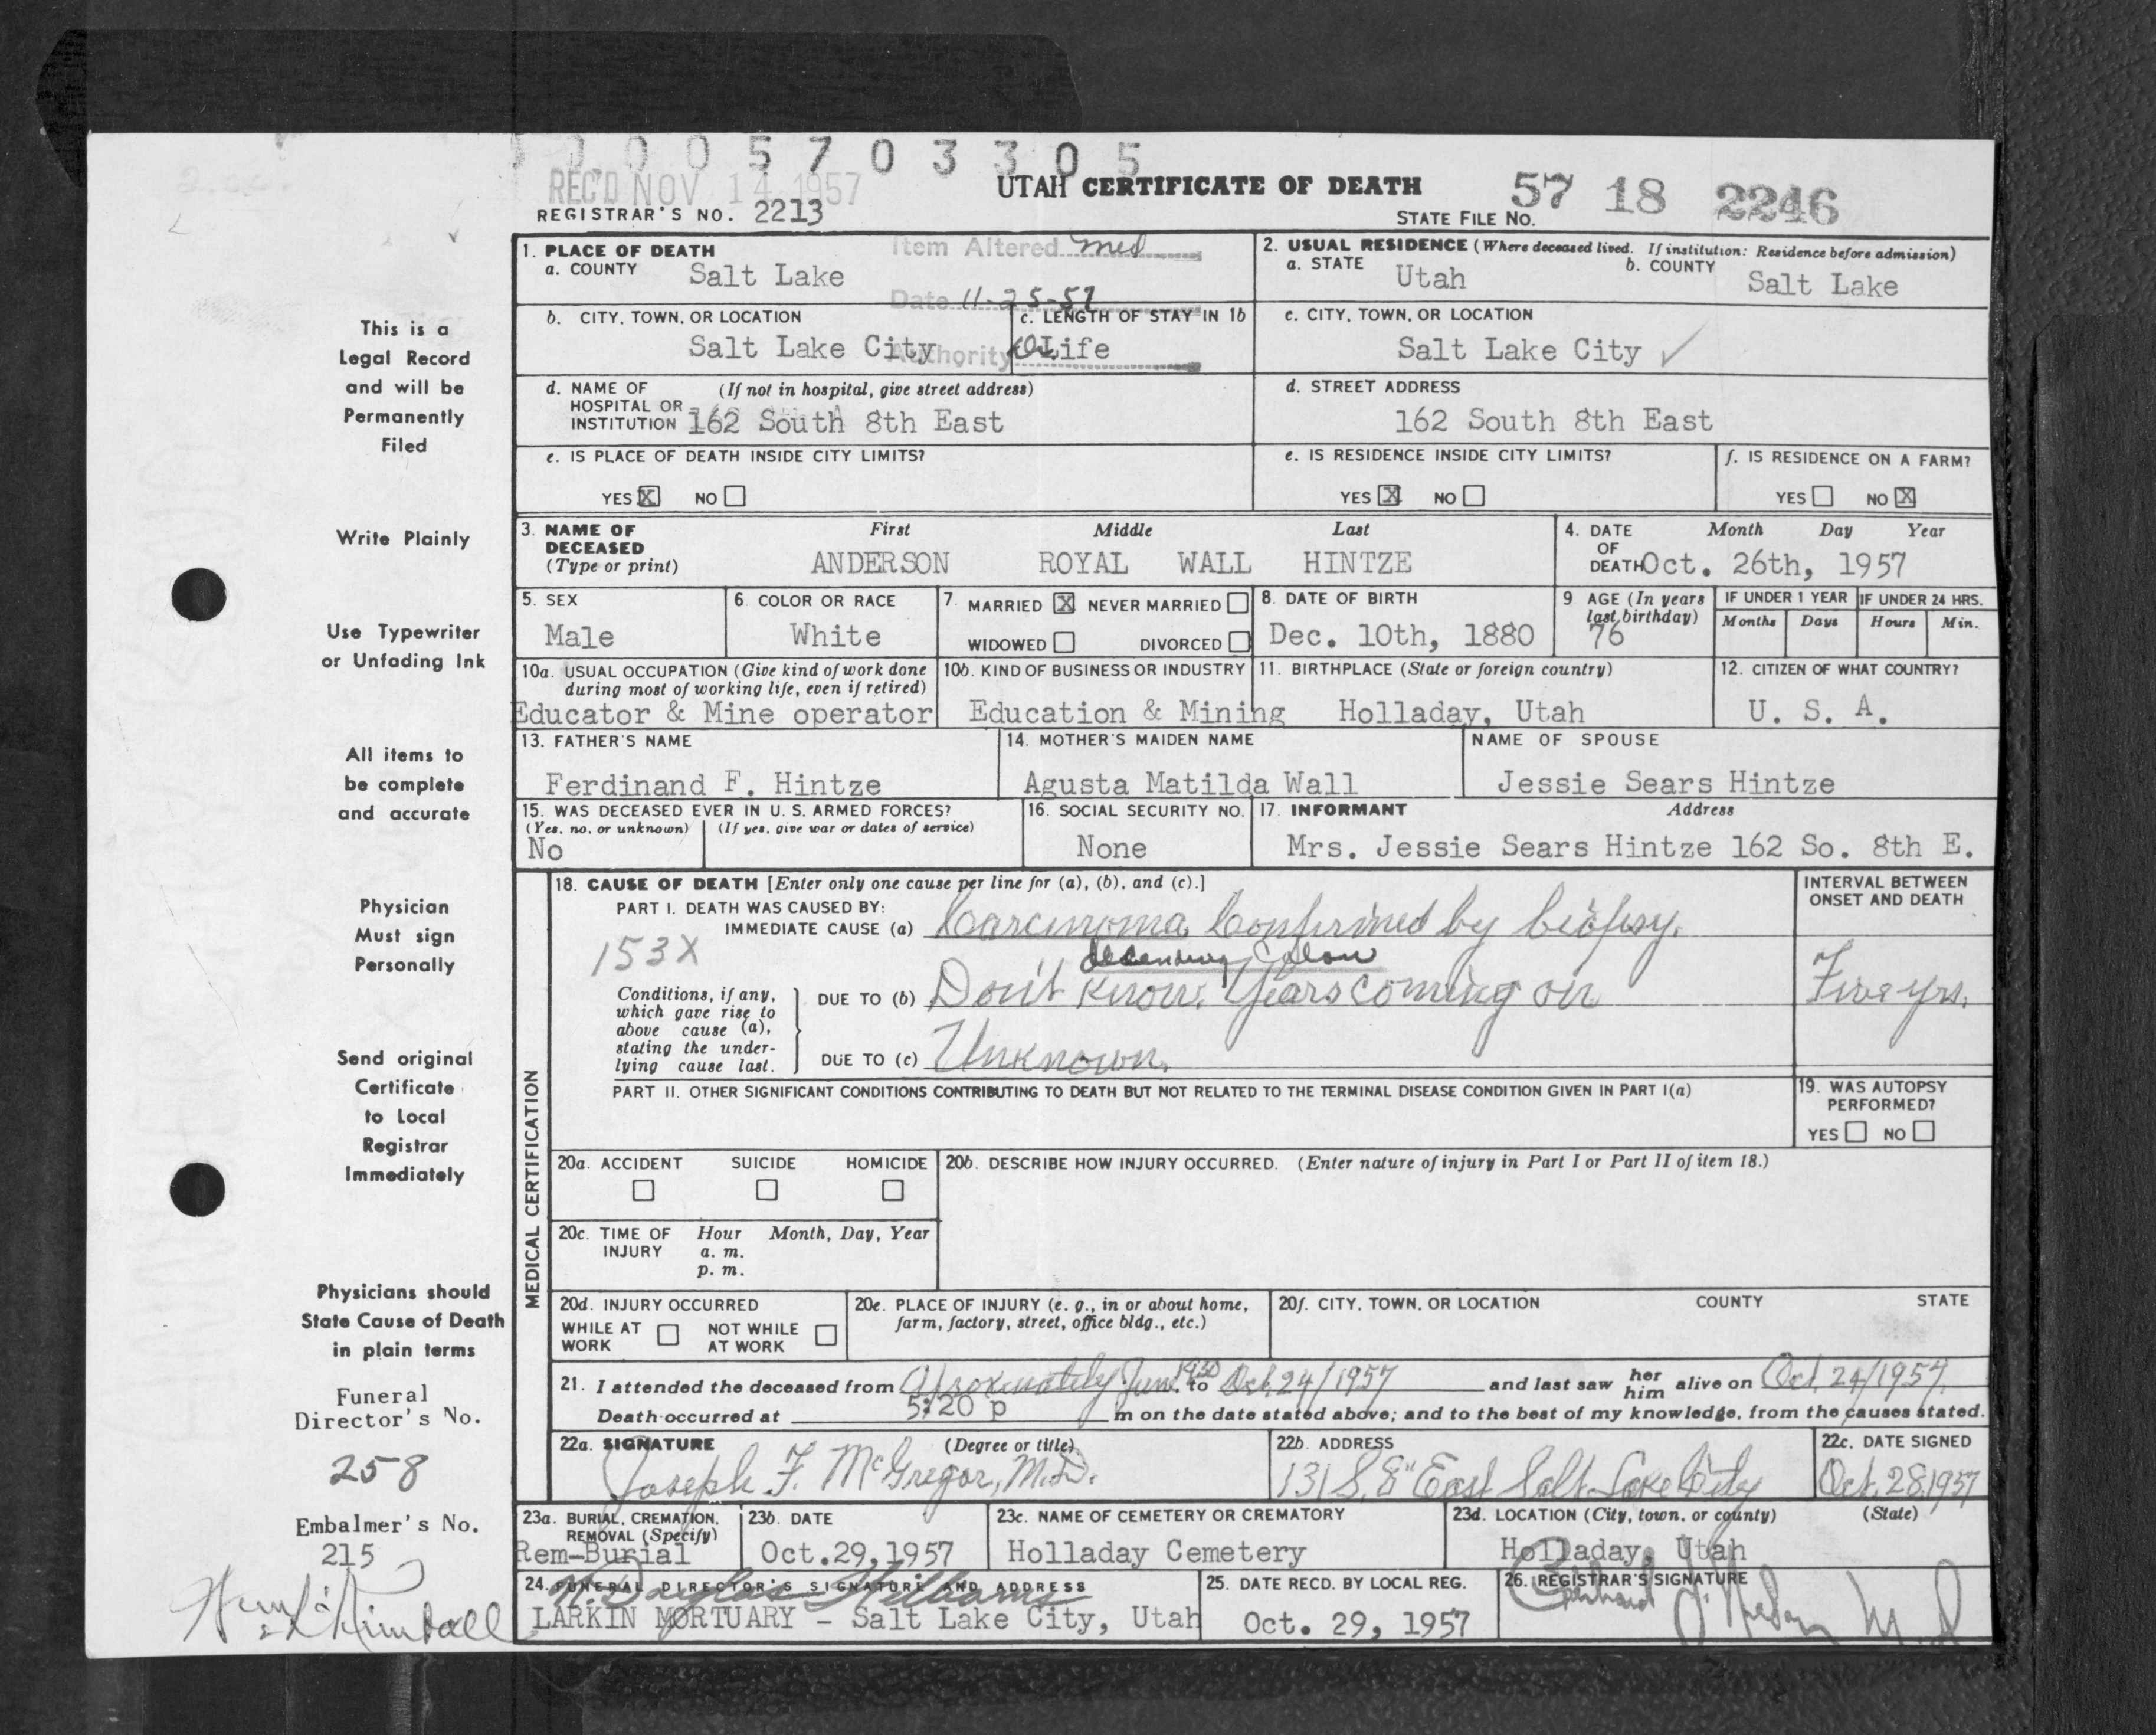 0 0 0 5 7 0 3 3 0 5
REC'D NOV 14 1957
UTAH CERTIFICATE OF DEATH
57 18 2246
REGISTRAR'S NO. 2213
STATE FILE NO.
1. PLACE OF DEATH
Item Altered med
a. COUNTY Salt Lake
Date 11-25-57
2. USUAL RESIDENCE (Where deceased lived. If institution: Residence before admission)
a. STATE Utah b. COUNTY Salt Lake
b. CITY, TOWN, OR LOCATION Salt Lake City
Authority
c. LENGTH OF STAY IN 1b Life
c. CITY, TOWN, OR LOCATION Salt Lake City ✓
d. NAME OF HOSPITAL OR INSTITUTION (If not in hospital, give street address) 162 South 8th East
d. STREET ADDRESS 162 South 8th East
e. IS PLACE OF DEATH INSIDE CITY LIMITS?
YES X NO
e. IS RESIDENCE INSIDE CITY LIMITS?
YES X NO
f. IS RESIDENCE ON A FARM?
YES NO X
3. NAME OF DECEASED (Type or print)
First Middle Last
ANDERSON ROYAL WALL HINTZE
4. DATE OF DEATH Month Day Year
Oct. 26th, 1957
5. SEX Male
6. COLOR OR RACE White
7. MARRIED X NEVER MARRIED
WIDOWED DIVORCED
8. DATE OF BIRTH Dec. 10th, 1880
9 AGE (In years last birthday) 76
IF UNDER 1 YEAR Months Days
IF UNDER 24 HRS. Hours Min.
10a. USUAL OCCUPATION (Give kind of work done during most of working life, even if retired)
Educator & Mine operator
10b. KIND OF BUSINESS OR INDUSTRY
Education & Mining
11. BIRTHPLACE (State or foreign country)
Holladay, Utah
12. CITIZEN OF WHAT COUNTRY?
U. S. A.
13. FATHER'S NAME
Ferdinand F. Hintze
14. MOTHER'S MAIDEN NAME
Agusta Matilda Wall
NAME OF SPOUSE
Jessie Sears Hintze
15. WAS DECEASED EVER IN U. S. ARMED FORCES?
(Yes, no, or unknown) (If yes, give war or dates of service)
No
16. SOCIAL SECURITY NO.
None
17. INFORMANT Address
Mrs. Jessie Sears Hintze 162 So. 8th E.
MEDICAL CERTIFICATION
18. CAUSE OF DEATH [Enter only one cause per line for (a), (b), and (c).]
INTERVAL BETWEEN ONSET AND DEATH
PART I. DEATH WAS CAUSED BY:
IMMEDIATE CAUSE (a) Carcinoma Confirmed by biopsy.
153X
decending Colon
Conditions, if any, which gave rise to above cause (a), stating the underlying cause last.
DUE TO (b) Don't know. Years coming on
Five yrs.
DUE TO (c) Unknown.
PART II. OTHER SIGNIFICANT CONDITIONS CONTRIBUTING TO DEATH BUT NOT RELATED TO THE TERMINAL DISEASE CONDITION GIVEN IN PART I(a)
19. WAS AUTOPSY PERFORMED?
YES NO
20a. ACCIDENT SUICIDE HOMICIDE
20b. DESCRIBE HOW INJURY OCCURRED. (Enter nature of injury in Part I or Part II of item 18.)
20c. TIME OF INJURY Hour Month, Day, Year
a. m.
p. m.
20d. INJURY OCCURRED
WHILE AT WORK NOT WHILE AT WORK
20e. PLACE OF INJURY (e. g., in or about home, farm, factory, street, office bldg., etc.)
20f. CITY, TOWN, OR LOCATION COUNTY STATE
21. I attended the deceased from Aproximately Jan. 1930 to Oct. 24/1957 and last saw her him alive on Oct. 24/1957.
Death occurred at 5:20 p m on the date stated above; and to the best of my knowledge, from the causes stated.
22a. SIGNATURE (Degree or title)
Joseph F. McGregor, M.D.
22b. ADDRESS
131 S. 8" East Salt Lake City
22c. DATE SIGNED
Oct. 28, 1957
23a. BURIAL, CREMATION, REMOVAL (Specify)
Rem-Burial
23b. DATE
Oct.29,1957
23c. NAME OF CEMETERY OR CREMATORY
Holladay Cemetery
23d. LOCATION (City, town, or county) (State)
Holladay, Utah
24. FUNERAL DIRECTOR'S SIGNATURE AND ADDRESS
LARKIN MORTUARY - Salt Lake City, Utah
25. DATE RECD. BY LOCAL REG.
Oct. 29, 1957
26. REGISTRAR'S SIGNATURE
This is a
Legal Record
and will be
Permanently
Filed
Write Plainly
Use Typewriter
or Unfading Ink
All items to
be complete
and accurate
Physician
Must sign
Personally
Send original
Certificate
to Local
Registrar
Immediately
Physicians should
State Cause of Death
in plain terms
Funeral
Director's No.
258
Embalmer's No.
215
Kimball